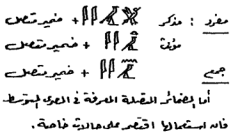 مفرد : مذكر + ضمير متصل
مؤنث + ضمير متصل
جمع + ضمير متصل
أما الضمائر المتصلة المعرفة في المصري المتوسط
فإن استعمالها اقتصر على حالات خاصة .